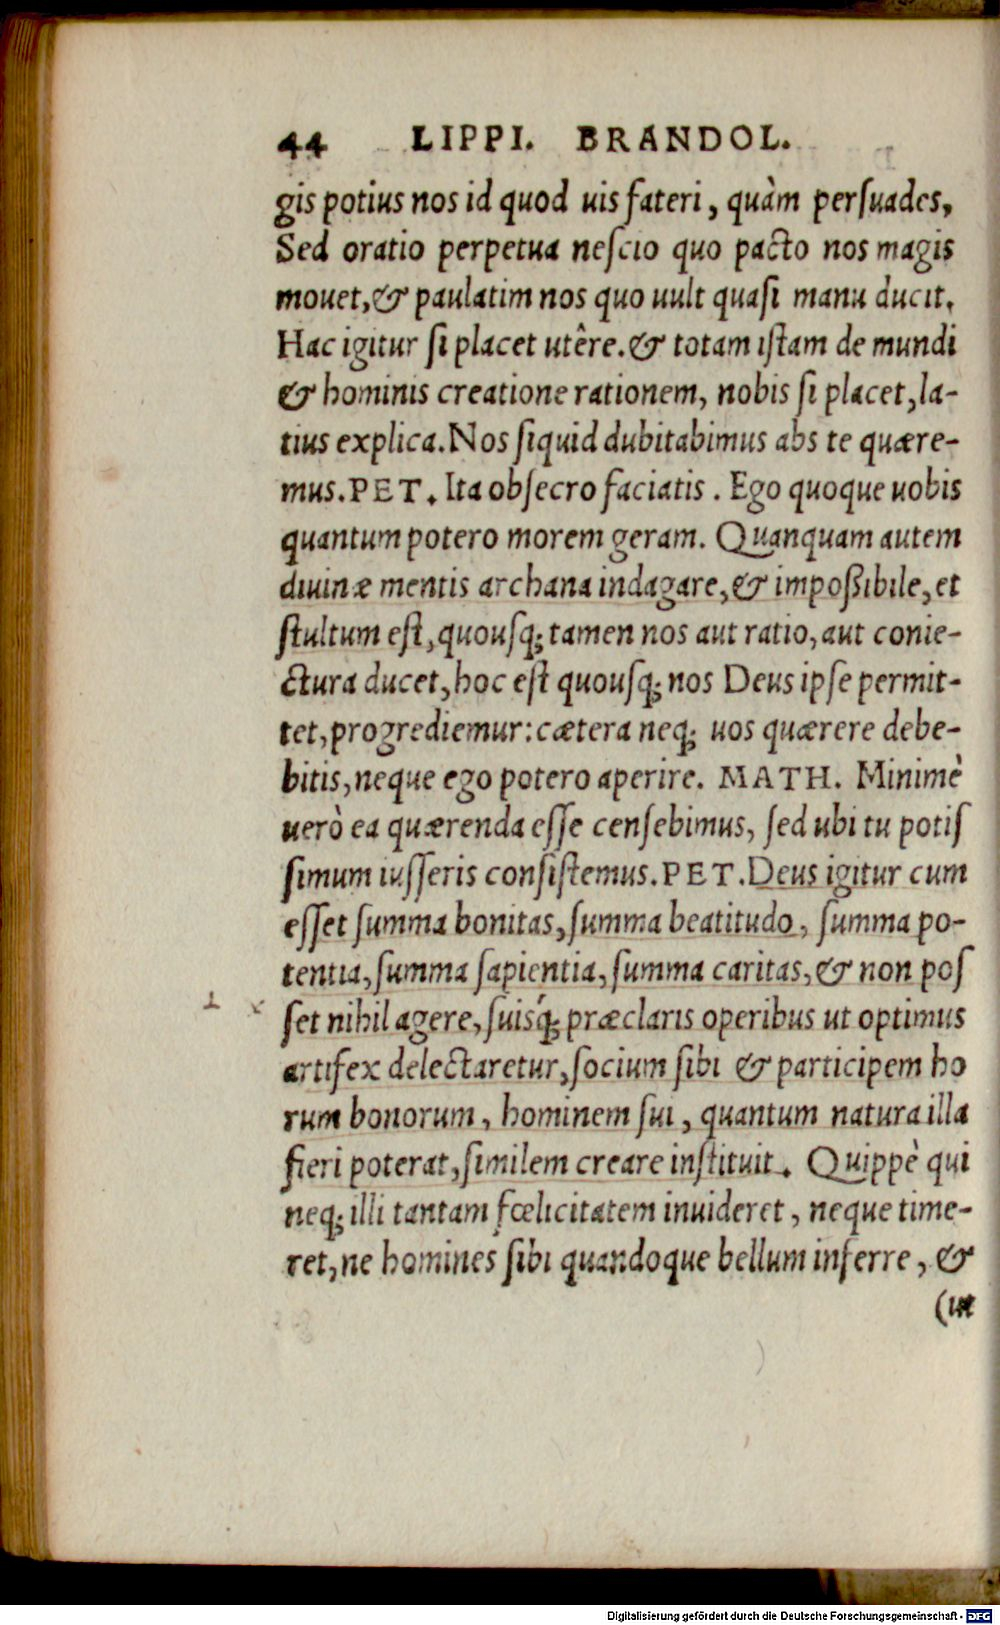 44 LIPPI. BRANDOL.
gis potius nos id quod uis fateri, quàm persuades,
Sed oratio perpetua nescio quo pacto nos magis
mouet,& paulatim nos quo uult quasi manu ducit.
Hac igitur si placet utêre.& totam istam de mundi
& hominis creatione rationem, nobis si placet,la-
tius explica.Nos siquid dubitabimus abs te quære-
mus.PET. Ita obsecro faciatis. Ego quoque uobis
quantum potero morem geram. Quanquam autem
diuinæ mentis archana indagare,& impoßibile,et
stultum est,quousq; tamen nos aut ratio,aut conie-
ctura ducet,hoc est quousq; nos Deus ipse permit-
tet,progrediemur:cætera neq; uos quærere debe-
bitis,neque ego potero aperire. MATH. Minimè
uerò ea quærenda esse censebimus, sed ubi tu potis
simum iusseris consistemus.PET.Deus igitur cum
esset summa bonitas,summa beatitudo, summa po-
tentia,summa sapientia,summa caritas,& non pos
set nihil agere,suisq́; præclaris operibus ut optimus
artifex delectaretur,socium sibi & participem ho
rum bonorum, hominem sui, quantum natura illa
fieri poterat,similem creare instituit. Quippè qui
neq; illi tantam fœlicitatem inuideret, neque time-
ret,ne homines sibi quandoque bellum inferre, &
(ut
Digitalisierung gefördert durch die Deutsche Forschungsgemeinschaft - DFG